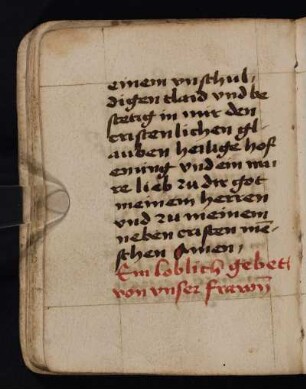 einem vnschul-
digen claid vnd be
stetig in mir den
cristenlichen gl-
auben heilige hof
enung vnd ein wa
re lieb zu dir got
meinem herren
vnd zu meinem
neben cristen mē-
schen Amen /
Ein loblich gebet
von vnser frawen